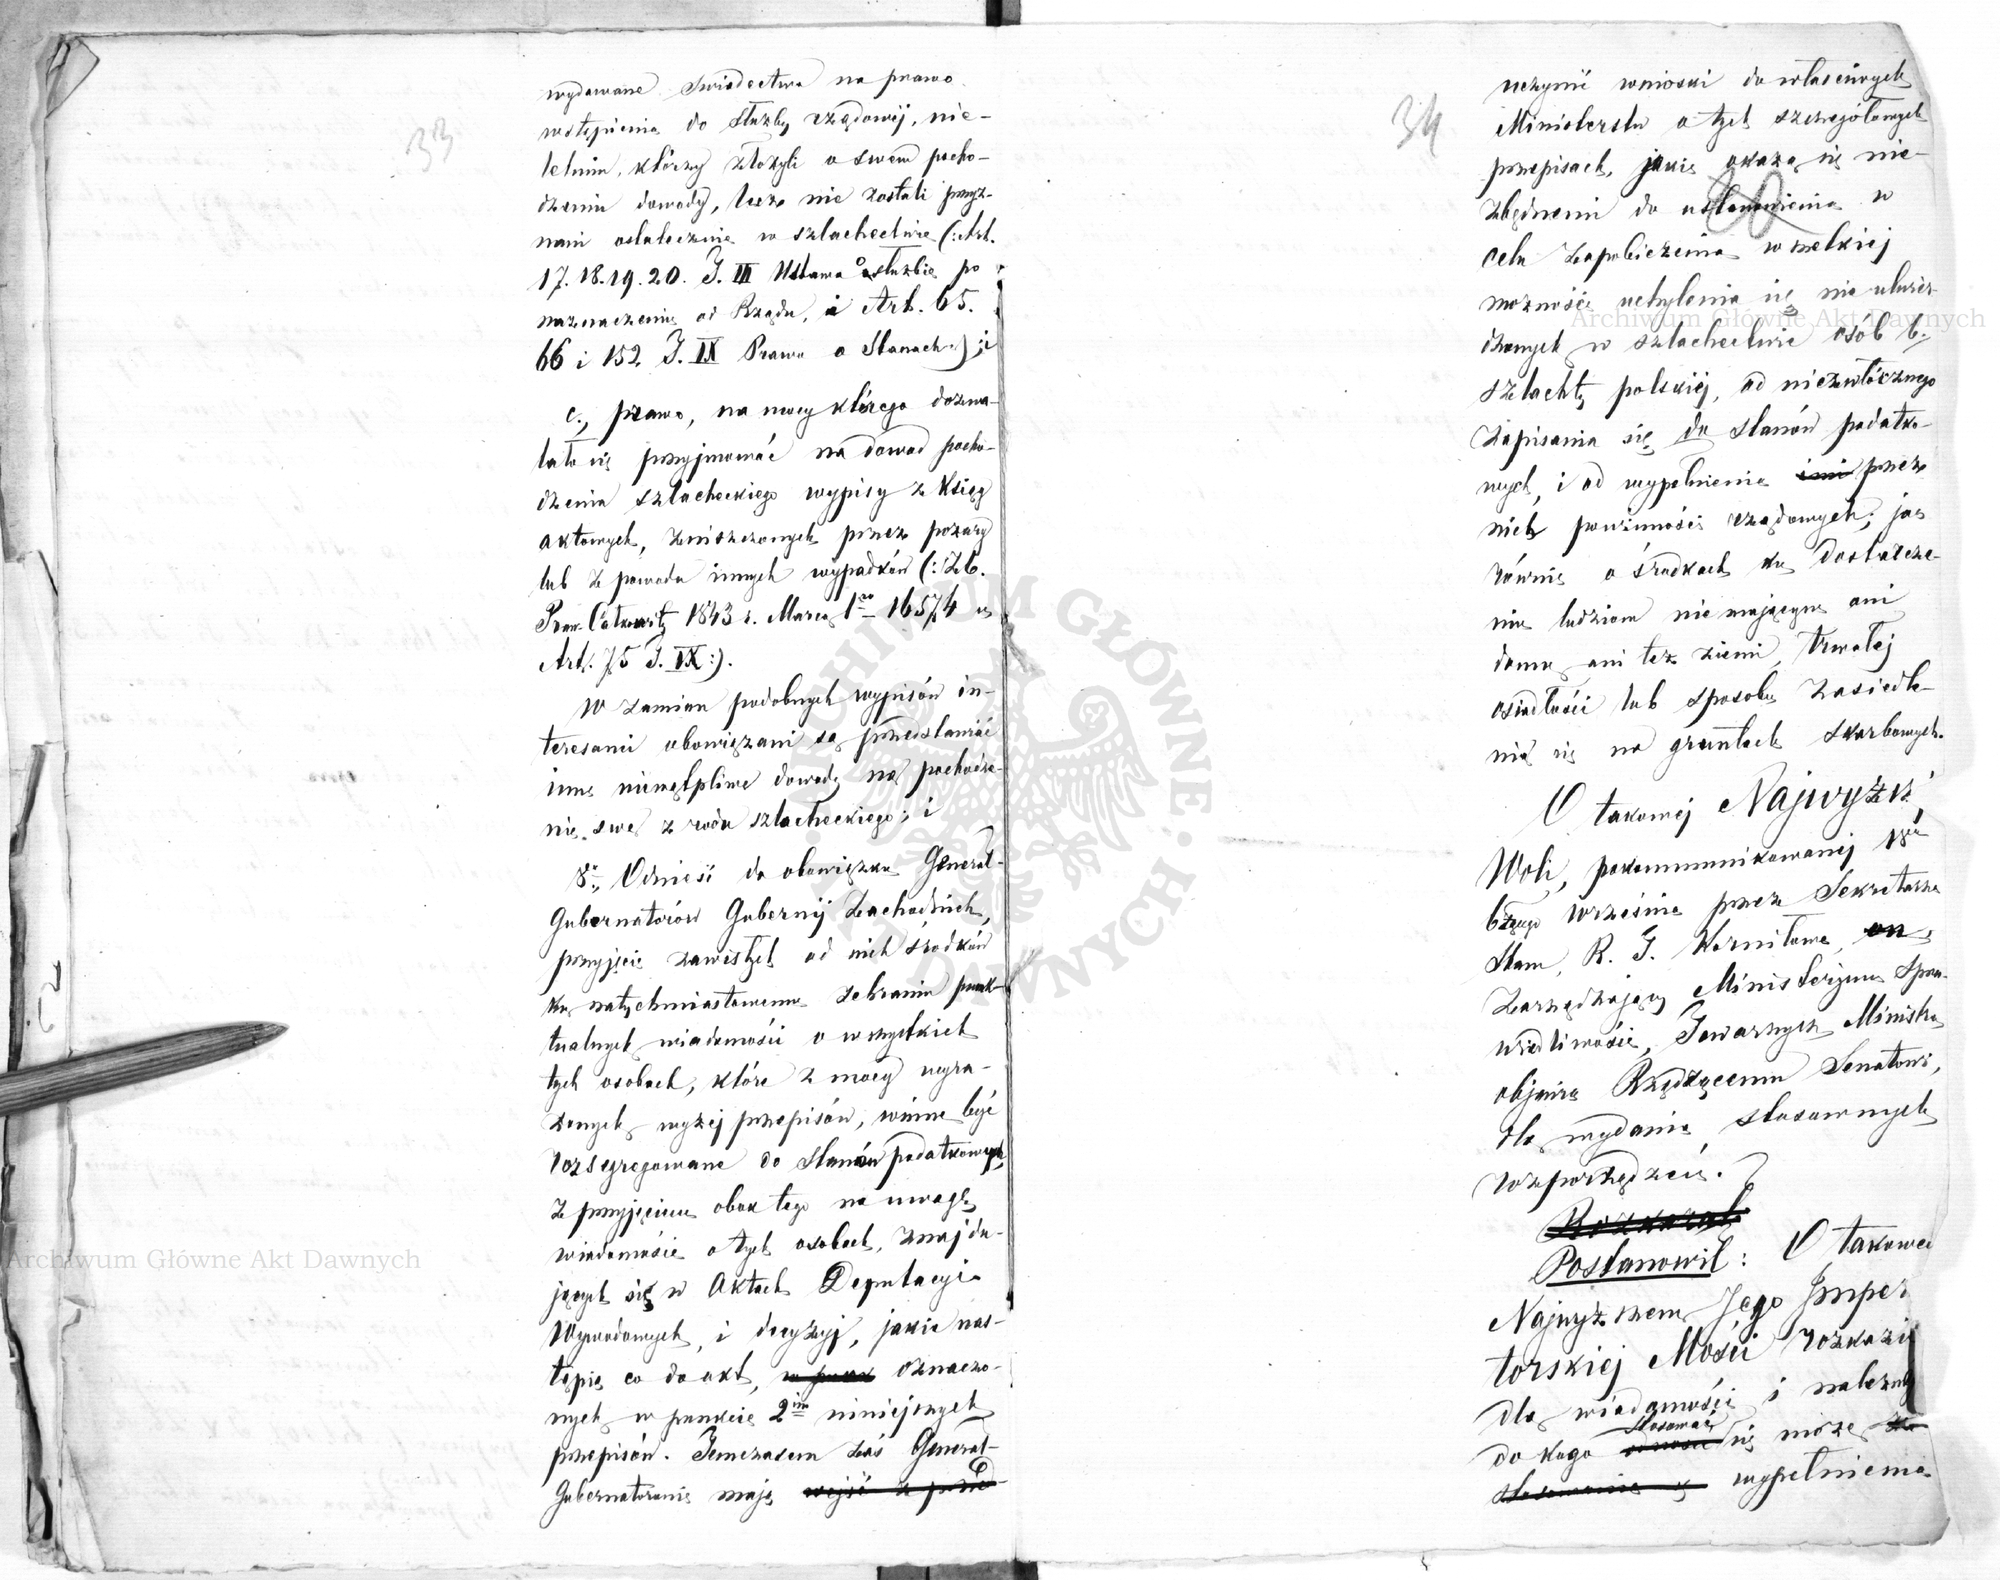 33
wydawane świadectwa na prawo
wstąpienia do służby rządowej, nie-
letnim, którzy złożyli o swem pocho-
dzeniu dowody, lecz nie zostali przyz-
nani ostatecznie w szlachectwie (:Art.
17. 18. 19. 20. T. III Ustawa o służbie po
naznaczeniu od Rządu, i Art. 65.
66 i 152 T. IX Prawa o Stanach:); i
c., prawo, na mocy którego dozwa-
lało się przyjmować na dowód pocho-
dzenia szlacheckiego wypisy z Ksiąg
aktowych, zniszczonych przez pożary
lub z powodu innych wypadków (: Zb.
Praw Całkowity 1843 r. Marca 1go 16574 i
Art. 75 T. IX:).
W zamian podobnych wypisów in-
teresanci obowiązani są przedstawiać
inne niewątpliwe dowody na pochodze-
nie swe z rodu szlacheckiego; i
8e., Odnieść do obowiązku Generał-
Gubernatorów Gubernij Zachodnich,
przyjęcie zawisłych od nich środków
ku natychmiastowemu zebraniu punk-
tualnych wiadomości o wszystkich
tych osobach, które z mocy wyra-
żonych wyżej przepisów, winne być
rozsegregowane do Stanów podatkowych
z przyjęciem obok tego na uwagę
wiadomości o tych osobach, znajdu-
jących się w Aktach Deputacyi
Wywodowych, i decyzyj, jakie nas-
tąpią co do akt, oznaczo-
nych w punkcie 2im niniejszych
przepisów. Tymczasem zaś Generał-
Gubernatorowie mają
34
uczynić wnioski do właściwych
Ministerstw o tych szczegółowych
przepisach, jakie okażą się nie-
zbędnemi do ustanowienia w
celu zapobieżenia wszelkiej
możności uchylenia się nie utwier-
dzonych w szlachectwie osób b.
szlachty polskiej, od niezwłócznego
zapisania się do stanów podatko-
wych, i od wypełnienia przez
nich powinności rządowych; jak
równie o środkach ku dostarcze-
niu ludziom nie mającym ani
domu ani też ziemi, trwałej
osiadłości lub sposobu zasiedle-
nia się na gruntach skarbowych.
O takowej Najwyższej
Woli, pokommunikowanej 18go
bżącego Września przez Sekretarza
Stanu, R. T. Korniłowa,
Zarządzający Ministeryum Spra-
wiedliwości, Towarzysz Ministra
objawia Rządzącemu Senatowi,
dla wydania stosownych
rozporządzeń.
Postanowił: O takowem
Najwyższem Jego Imper
torskiej Mości rozkazie
dla wiadomości i należnego
do kogo stosować się może
wypełnienia
Archiwum Główne Akt Dawnych
Archiwum Główne Akt Dawnych
ARCHIWUM GŁÓWNE AKT DAWNYCH